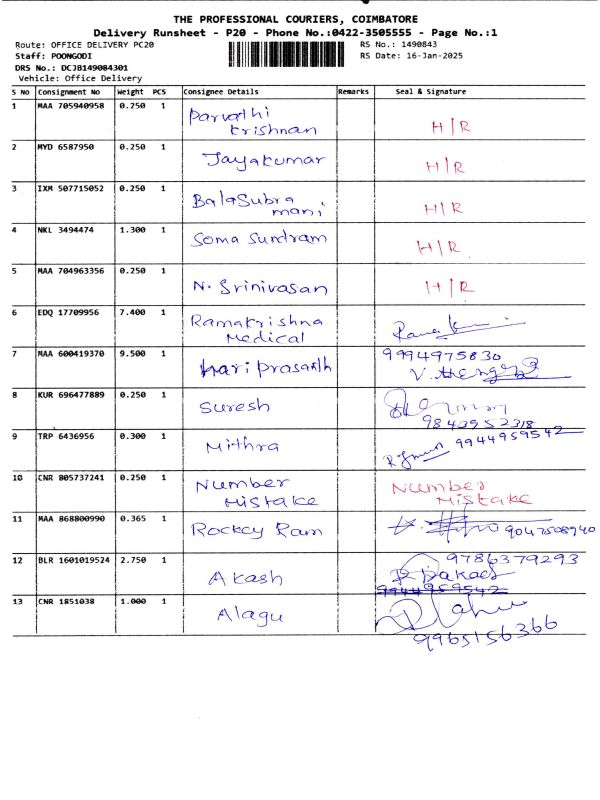 THE PROFESSIONAL COURIERS, COIMBATORE
Delivery Runsheet - P20 - Phone No.:0422-3505555 - Page No.:1
Route: OFFICE DELIVERY PC20 RS No.: 1490843
Staff: POONGODI RS Date: 16-Jan-2025
DRS No.: DCJB149084301
Vehicle: Office Delivery
S No Consignment No Weight PCS Consignee Details Remarks Seal & Signature
1 MAA 705940958 0.250 1 Parvathi
Krishnan H|R
2 MYD 6587950 0.250 1 Jayakumar H|R
3 IXM 507715052 0.250 1 BalaSubra
mani H|R
4 NKL 3494474 1.300 1 Soma Sundram H|R
5 MAA 704963356 0.250 1 N. Srinivasan H|R
6 EDQ 17709956 7.400 1 Ramakrishna
Medical
7 MAA 600419370 9.500 1 Hari Prasanth 9994975830
8 KUR 696477889 0.250 1 Suresh
9840952318
9 TRP 6436956 0.300 1 Mithra 9944959542
10 CNR 805737241 0.250 1 Number Number
Mistake Mistake
11 MAA 868800990 0.365 1 Rockey Ram 9047508940
12 BLR 1601019524 2.750 1 Akash 9786379293
9944959542
13 CNR 1851038 1.000 1 Alagu
9965156366